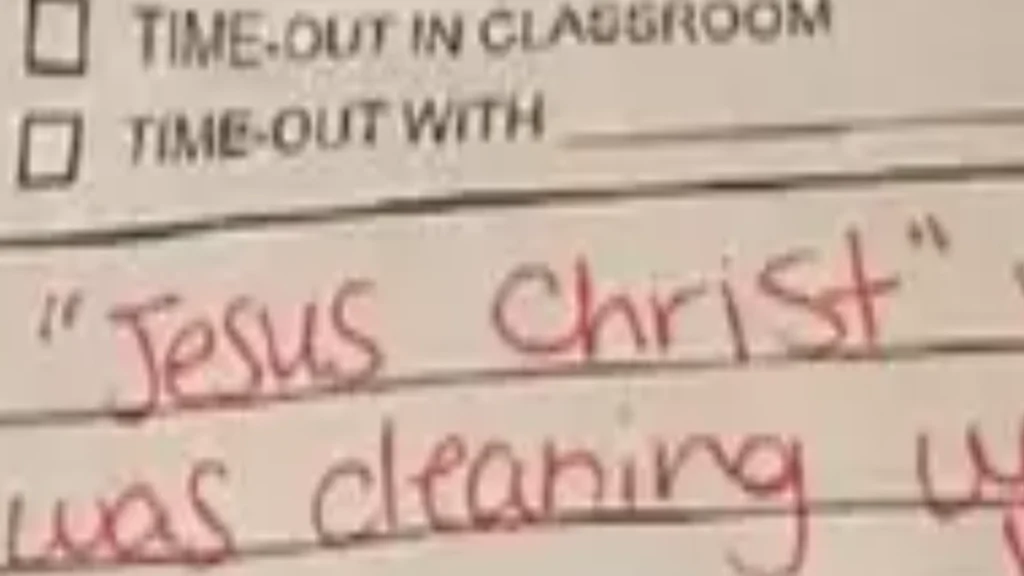 TIME-OUT IN CLASSROOM
TIME-OUT WITH
"Jesus Christ"
was cleaning up